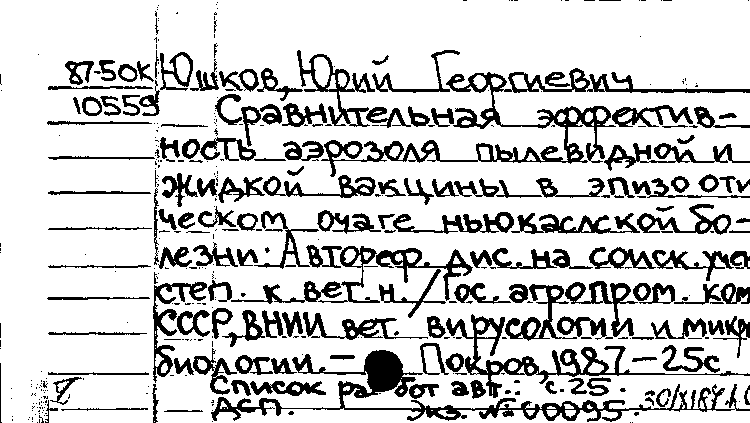 87-50К Юшков, Юрий Георгиевич
10559 Сравнительная эффектив-
ность аэрозоля пылевидной и
жидкой вакцины в эпизооти
ческом очаге ньюкаслской бо-
лезни: Автореф. дис. на соиск. учен
степ. к. вет. н. / Гос. агропром. ком
СССР, ВНИИ вет. вирусологии и микр
биологии. — Покров, 1987. — 25с.
Список работ авт.: с. 25.
ДСП. Экз. № 00095.